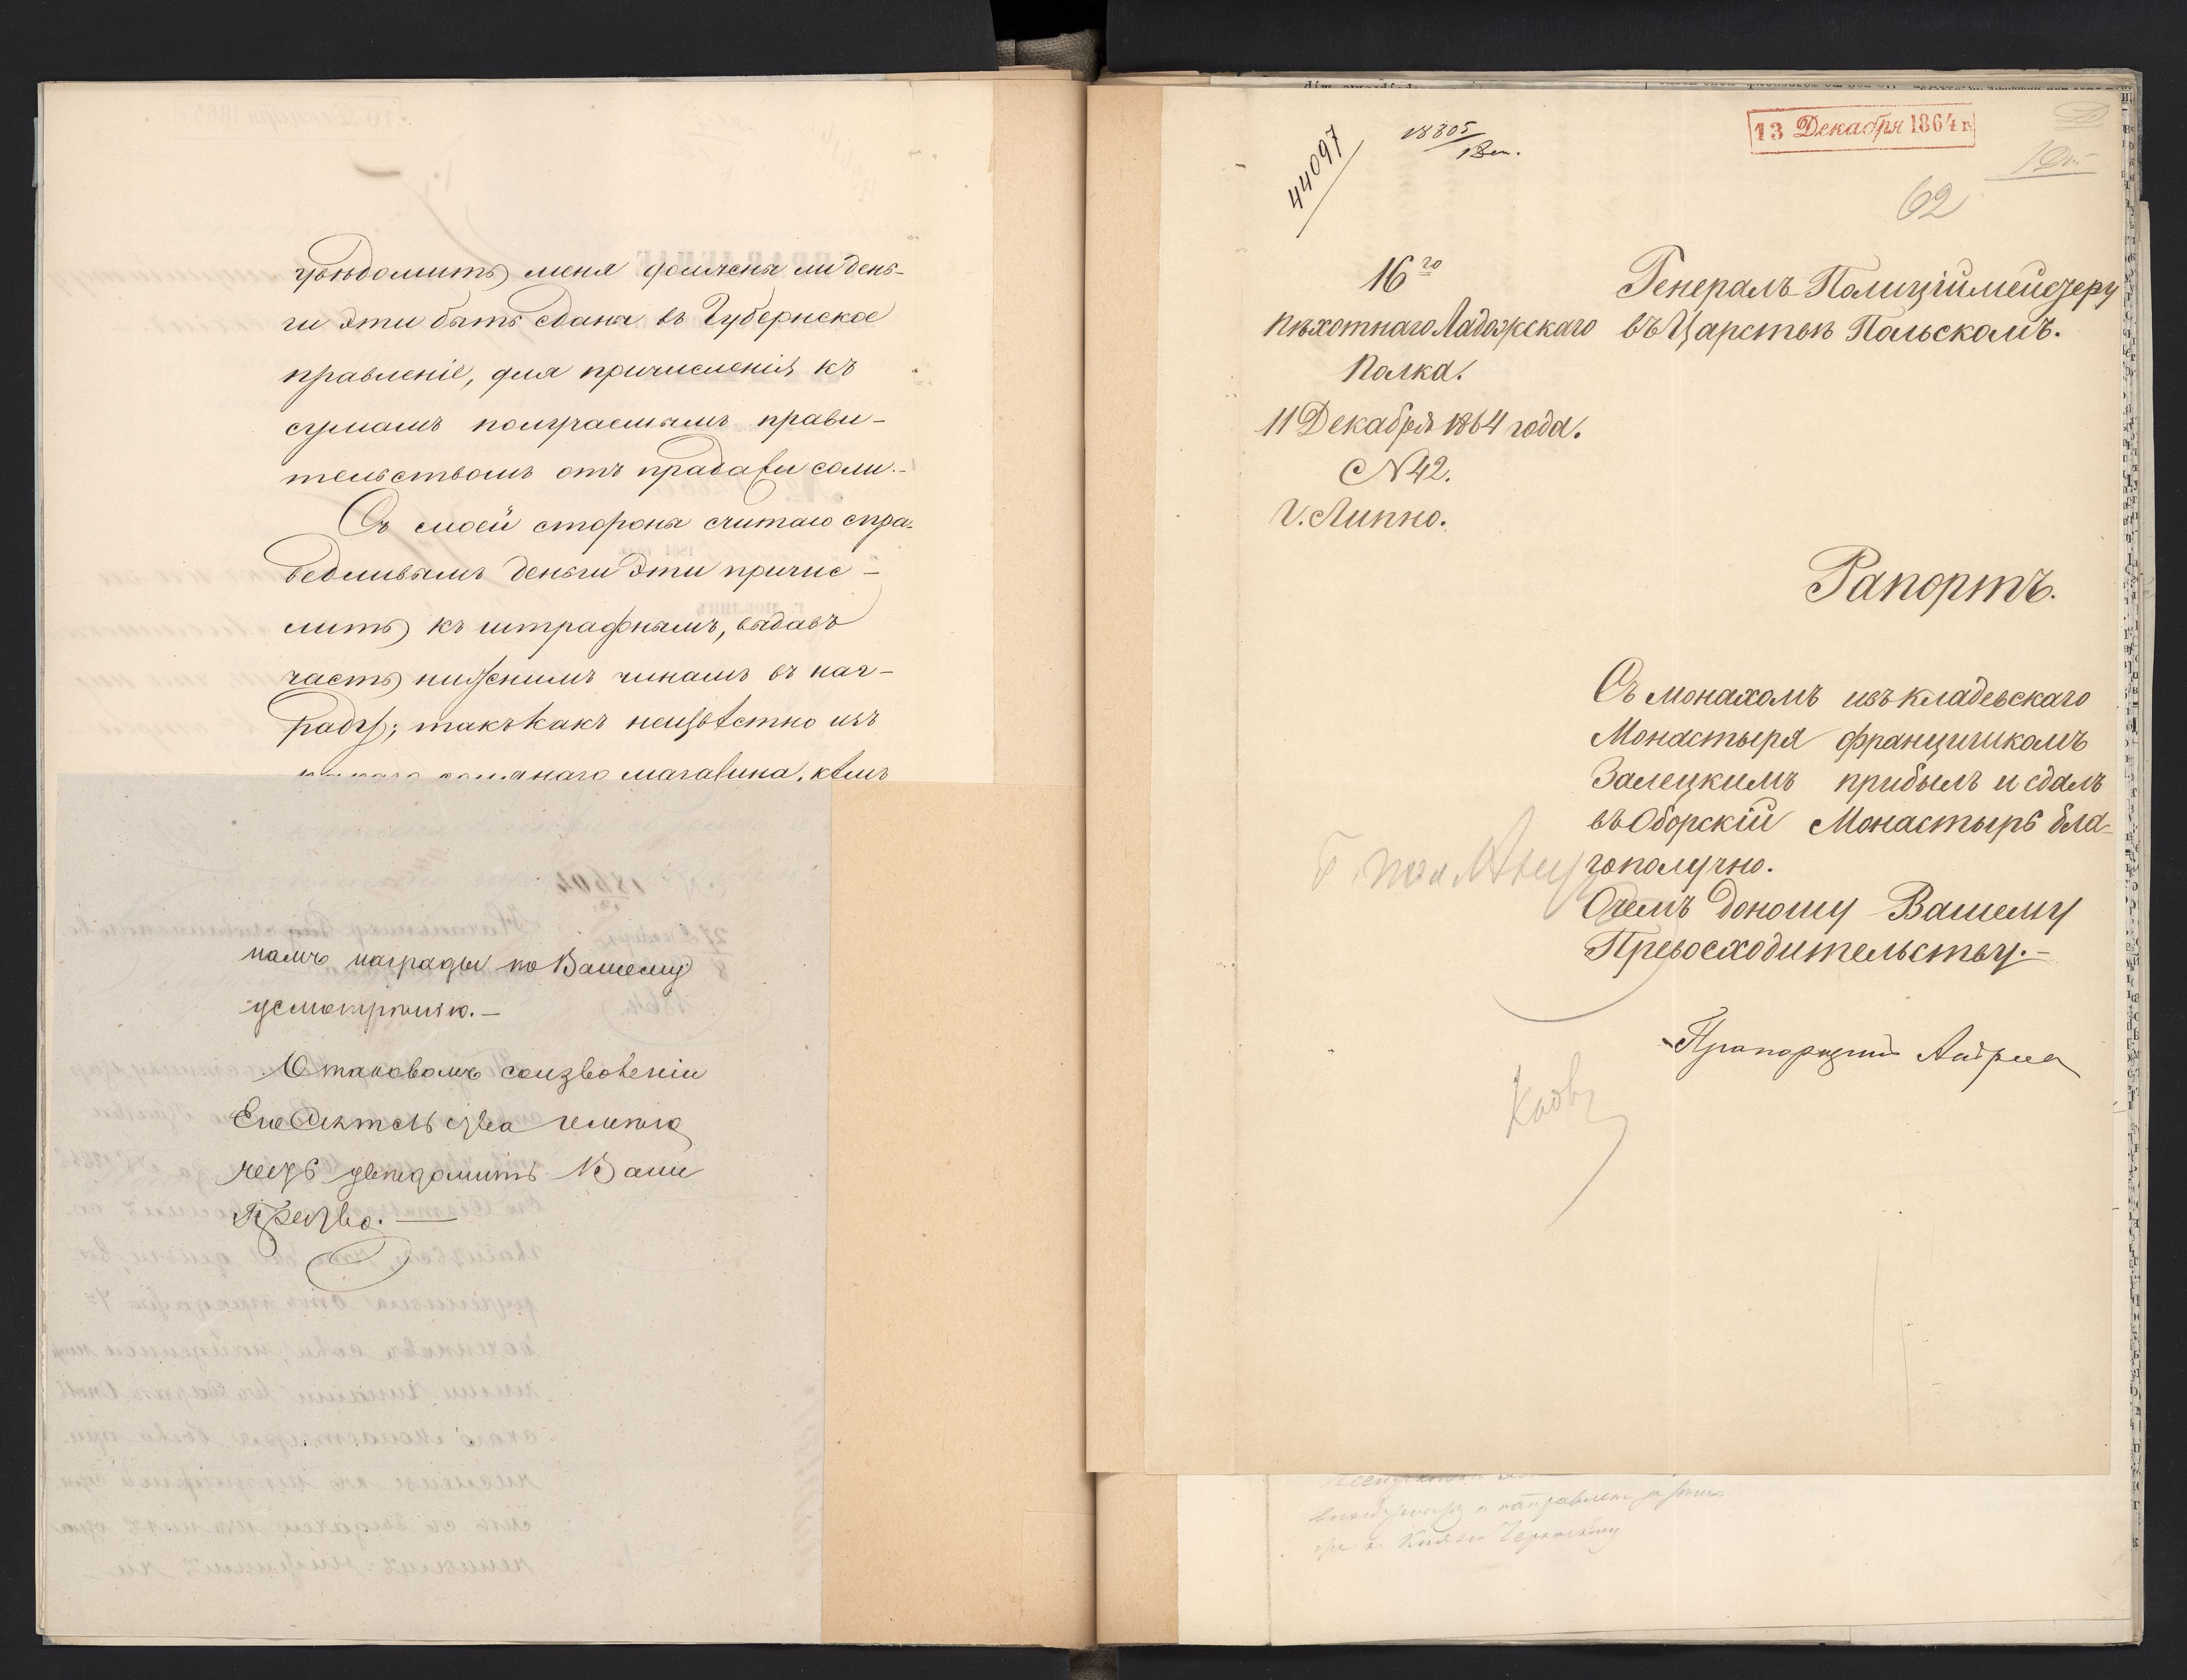 увѣдомить меня должны ли день-
ги эти быть сданы въ Губернское
правленіе, для причисленія къ
сумамъ получаемымъ прави-
тельствомъ отъ продажи соли.-
Съ моей стороны считаю спра-
ведливымъ деньги эти причис-
лить къ штрафнымъ, выдавъ
часть нижнимъ чинамъ въ наг-
раду; такъ какъ неизвѣстно изъ
магазина, кѣмъ
намъ награды по Вашему
усмотрѣнію.-
О таковомъ соизволеніи
Его Сіятельства имѣю
честь увѣдомить Ваше
Пр-ство.-
13 Декабря 1864 г.
44097
18805
62
16го
Пѣхотнаго Ладожскаго
Полка.
11 Декабря 1864 года.
N 42.
Г. Липно.
Генералъ-Полиціймейстеру
въ Царствѣ Польскомъ.
Рапортъ.
Съ монахомъ изъ кладевскаго
Монастыря францишкомъ
Залецкимъ прибылъ и сдалъ
въ Оборскій Монастырь бла-
гополучно.
О чемъ доношу Вашему
Превосходительству.-
Прапорщикъ